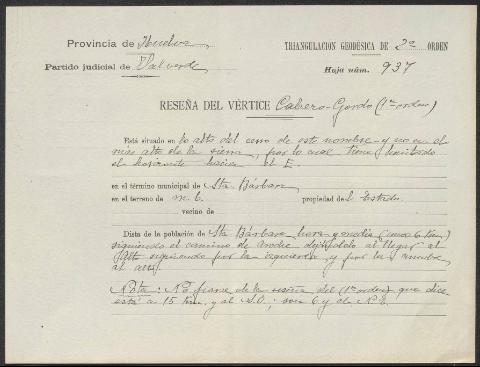 Provincia de Huelva
TRIANGULACIÓN GEODÉSICA DE 2º ORDEN
Partido judicial de Valverde
Hoja núm. 937
RESEÑA DEL VÉRTICE Cabezo-Gordo (1er orden)
Está situado en lo alto del cerro de este nombre y no en el
más alto de la sierra, por lo cual tiene limitado
el horizonte hacia el E.
en el término municipal de Sta. Bárbara
en el terreno de m. c. propiedad del Estado
vecino de
Dista de la población de Sta Bárbara hora y media (unos 6 Km.)
siguiendo el camino de dejándolo al llegar al
alto siguiendo por la izquierda y por la
al alto.
Nota: No fiarse de la reseña del (1er orden) que dice
está a 15 Km. y al S.O.; son 6 y al N.E.